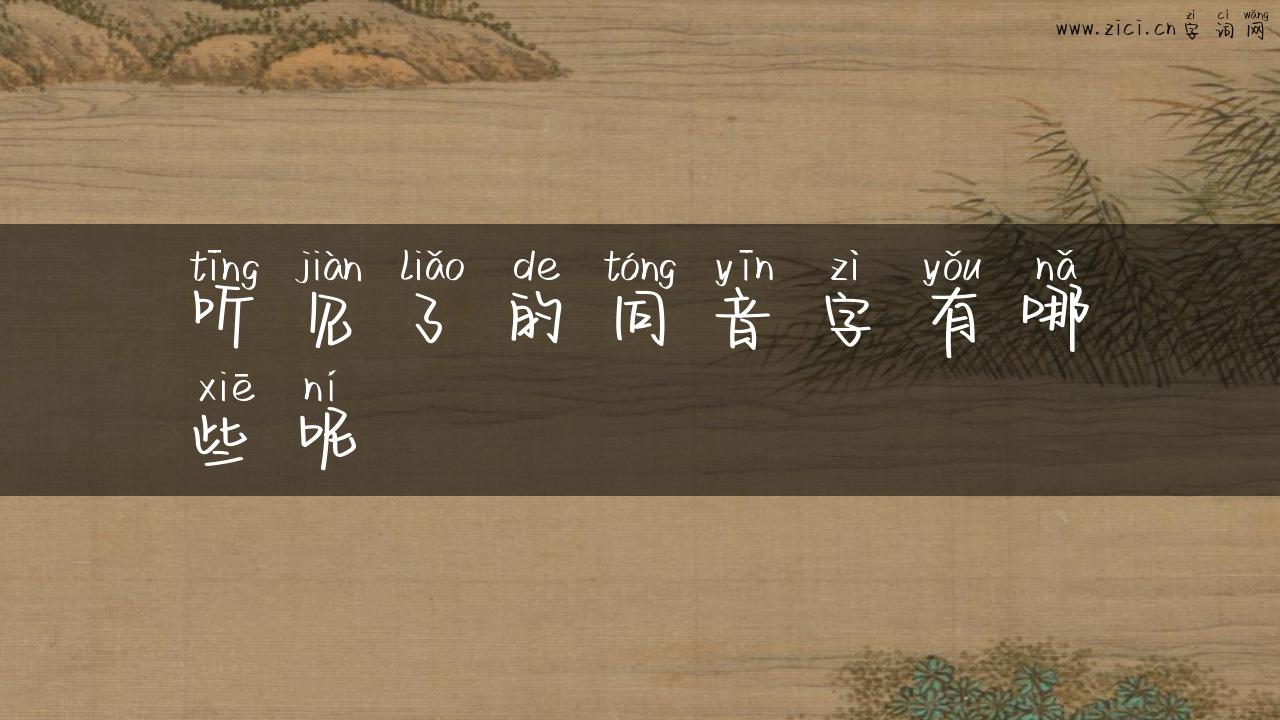 zì cí wǎng
www.zici.cn 字词网
tīng jiàn liǎo de tóng yīn zì yǒu nǎ
听见了的同音字有哪
xiē ní
些呢